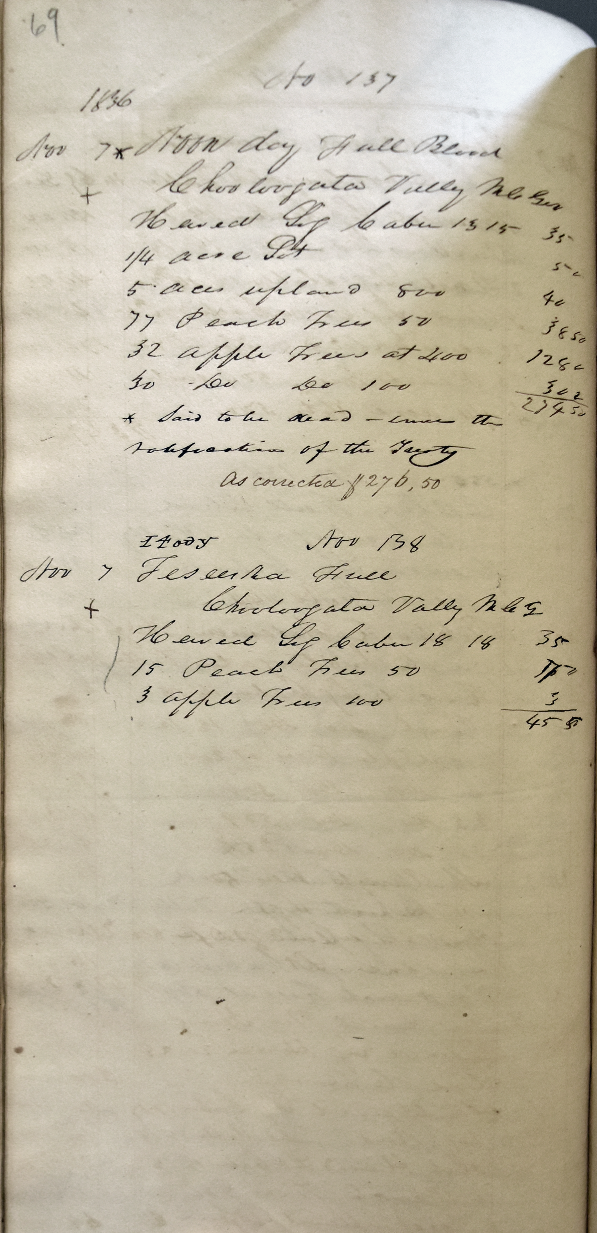 69
No 137
1836
Nov 7 * Noon day Full Blood
+ Chooloogata Vally McG
Hewed Log Cabin 13 15 35
1/4 acre Lot 50
5 aces upland 800 40
77 Peach Trees 50 3850
32 apple Trees at 400 1280
30 Do Do 100 300
27450
* Said to be dead - since the
ratification of the Treaty
As corrected $276,50
Nov 138
Nov 7 Teseeska Full
+ Chooloogata Vally McG
Hewed Log Cabin 18 18 35
15 Peach Trees 50 750
3 apple Trees 100 3
45 5